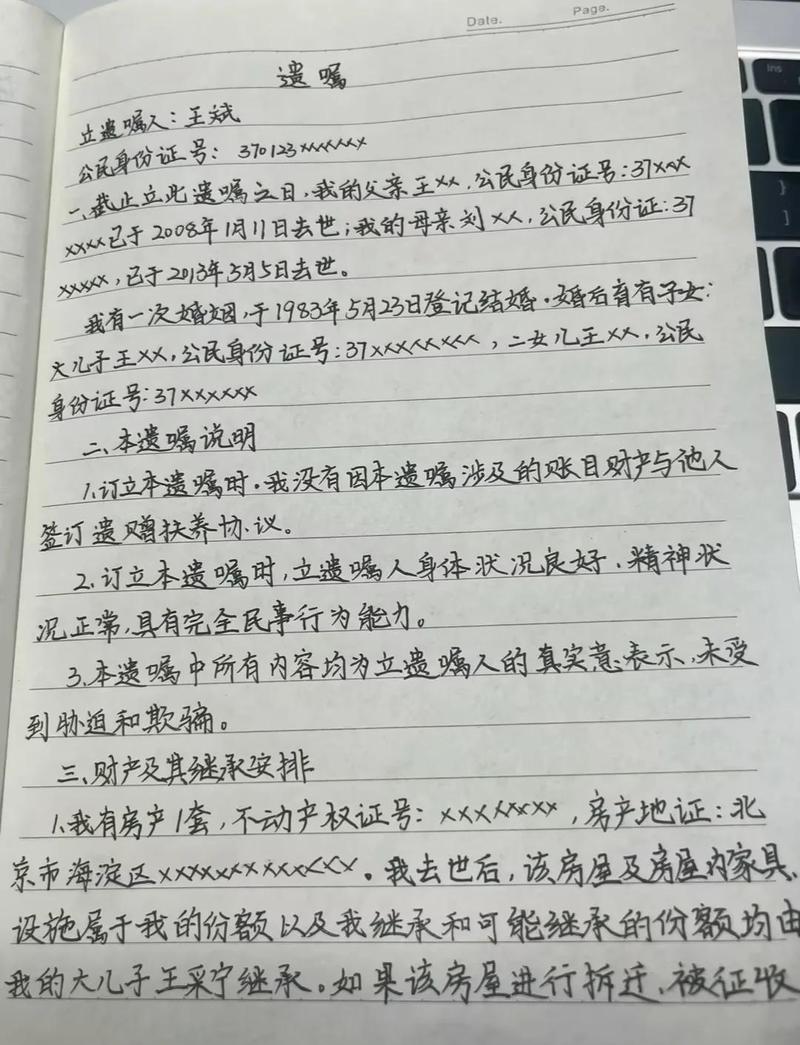 Date.
Page.
遗嘱
立遗嘱人：王斌
公民身份证号：370123×××××××
一、截止立此遗嘱之日，我的父亲王××，公民身份证号：37×××
××××已于2008年1月11日去世；我的母亲刘××，公民身份证：37
×××××，已于2013年3月5日去世。
我有一次婚姻，于1983年5月23日登记结婚。婚后育有子女：
大儿子王××，公民身份证号：37×××××××××，二女儿王××，公民
身份证号：37×××××××
二、本遗嘱说明
1.订立本遗嘱时，我没有因本遗嘱涉及的账目财产与他人
签订遗赠扶养协议。
2.订立本遗嘱时，立遗嘱人身体状况良好、精神状
况正常，具有完全民事行为能力。
3.本遗嘱中所有内容均为立遗嘱人的真实意表示，未受
到胁迫和欺骗。
三、财产及其继承安排
1.我有房产1套，不动产权证号：××××××××，房产地证：北
京市海淀区×××××××××××××。我去世后，该房屋及房屋内家具、
设施属于我的份额以及我继承和可能继承的份额均由
我的大儿子王采宁继承。如果该房屋进行拆迁、被征收
ins
}
]